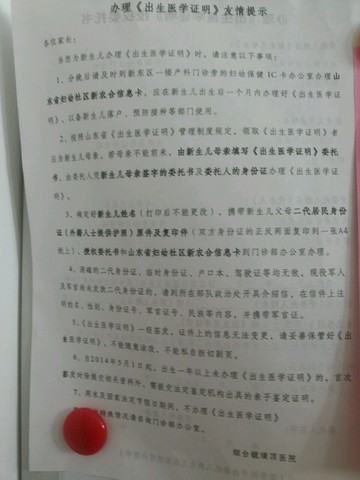 办理《出生医学证明》友情提示
各位家长：
当您为新生儿办理《出生医学证明》时，请注意以下事项：
1、分娩后请及时到新东区一楼产科门诊旁的妇幼保健IC卡办公室办理山
东省妇幼社区新农合信息卡，应在新生儿出生后一个月内办理好《出生医学证
明》，以备新生儿落户、预防接种等部门使用。
2、按照山东省《出生医学证明》管理制度规定，领取《出生医学证明》者
应为新生儿母亲，若母亲不能前来，由新生儿母亲填写《出生医学证明》委托
书，由委托人凭新生儿母亲签字的委托书及委托人的身份证办理《出生医学证
明》。
3、确定好新生儿姓名（打印后不能更改），携带新生儿父母二代居民身份
证（外籍人士提供护照）原件及复印件（双方身份证的正反两面复印到一张A4
纸上）、授权委托书和山东省妇幼社区新农合信息卡到门诊部办公室办理。
4、消磁的二代身份证、临时身份证、户口本、驾驶证等均无效，现役军人
及军官尚未发放二代身份证的，请到所在部队政治处开具介绍信，在信件上注
明姓名、性别、身份证号、军官证号、民族等内容，并携带军官证。
5、《出生医学证明》一经签发，证件上的信息无法变更，请妥善保管好《出
生医学证明》，不能随意涂改，不能私自拆切副页。
6、自2014年5月1日起，出生一年以上未办理《出生医学证明》的，首次
签发时除提交相关资料外，需提交法定鉴定机构出具的亲子鉴定证明。
7、周末及国家法定节假日期间，不办理《出生医学证明》
特殊情况请咨询门诊部办公室。
烟台毓璜顶医院